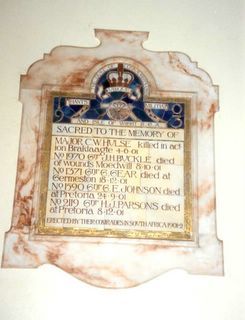 HANTS
MILITIA
AND ISLE OF WIGHT R.G.A.
SACRED TO THE MEMORY OF
MAJOR C.W. HULSE killed in ac
ion Braklaagte 4-6-01
No 1970 Gnr J.H. BUCKLE died
of wounds Moedwil 8-10-01
No 1371 Gnr G. GEAR died at
Germeston 18-12-01
No 1590 Gnr G.E. JOHNSON died
at Pretoria 24-9-01
No 2119 Gnr H.J. PARSONS died
at Pretoria 8-12-01
ERECTED BY THEIR COMRADES IN SOUTH AFRICA 1901-2